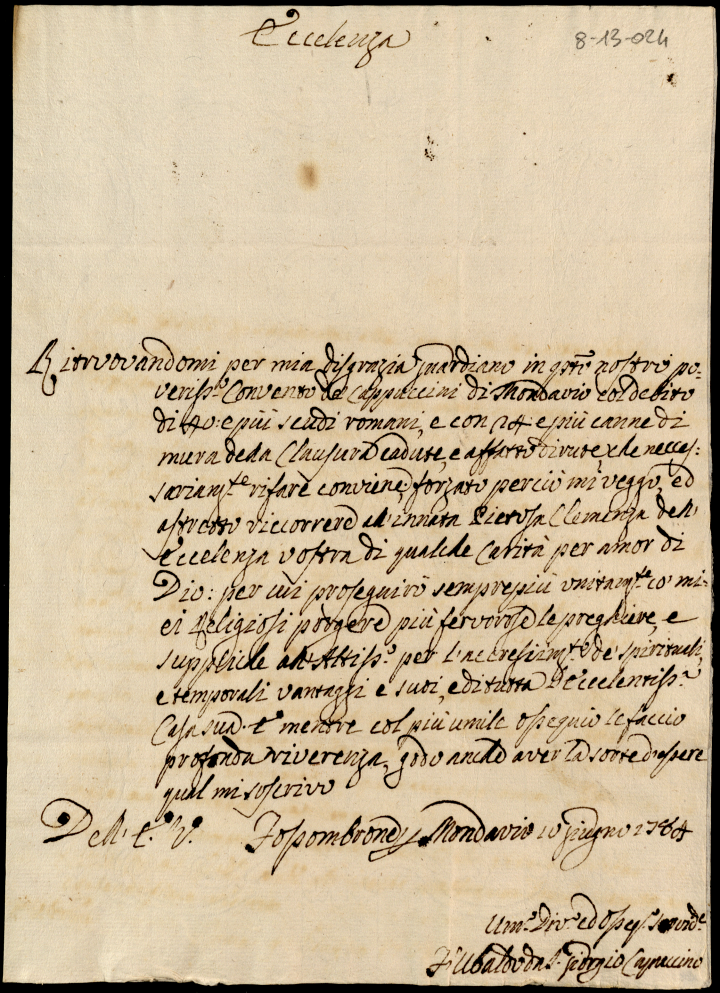 Eccelenza
8-13-024
Ritruovandomi per mia disgrazia Guardiano in qsto nostro po-
veriss.o Convento de Cappuccini di Mondavio col debito
di 40: e più scudi romani, e con 24 e più canne di
mura della Clausura cadute, e affatto dirute che neces-
sariam.te rifare conviene, forzato perciò mi veggo, ed
astretto riccorrere all'innata Pietosa Clemenza dell'
Eccelenza vostra di qualche carità per amor di
Dio: per cui proseguirò semprepiù unitam.te co' mi-
ei Religiosi porgere più fervorose le preghiere, e
suppliche all'Altiss.o per l'accrescim.to de' spirituali,
e temporali vantaggi e suoi, e di tutta l'Eccelentiss.a
Casa sua. E mentre col più umile ossequio le faccio
profonda riverenza, godo anche aver la sorte d'essere
qual mi soscrivo
Dell' E. V. Fossombrone Mondavio 10 Giugno 1764
Um.o Div.o ed Osseq.o Servid.e
F. Ubaldo da S. Giorgio Cappuccino